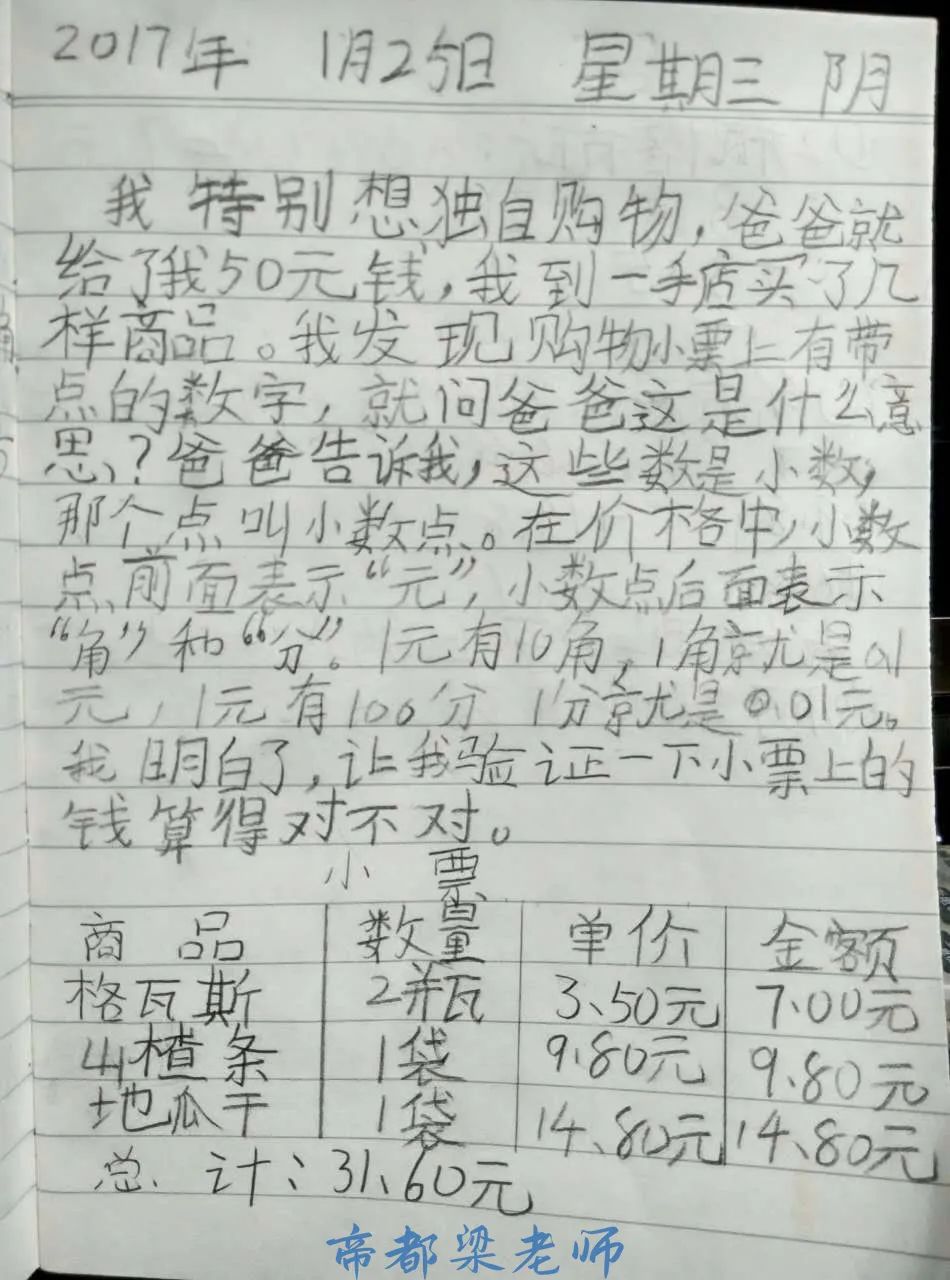 2017年 1月25日 星期三 阴
我特别想独自购物，爸爸就
给了我50元钱，我到一手店买了几
样商品。我发现购物小票上有带
点的数字，就问爸爸这是什么意
思？爸爸告诉我，这些数是小数，
那个点叫小数点。在价格中，小数
点前面表示“元”，小数点后面表示
“角”和“分”。1元有10角，1角就是0.1
元，1元有100分 1分就是0.01元。
我明白了，让我验证一下小票上的
钱算得对不对。
小票
商品 数量 单价 金额
格瓦斯 2瓶 3.50元 7.00元
山楂条 1袋 9.80元 9.80元
地瓜干 1袋 14.80元 14.80元
总计：31.60元
帝都梁老师